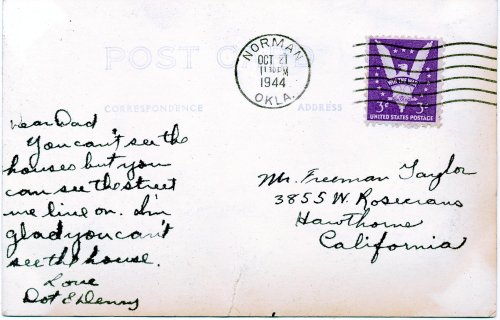 POST CARD
CORRESPONDENCE
ADDRESS
NORMAN
OCT 21
1944
OKLA.
WIN THE WAR
3¢ 3¢
UNITED STATES POSTAGE
Dear Dad
You can't see the
houses but you
can see the street
we live on. I'm
glad you can't
see the house.
Love
Dot & Denny
Mr. Freeman Taylor
3855 W. Rosecrans
Hawthorne
California